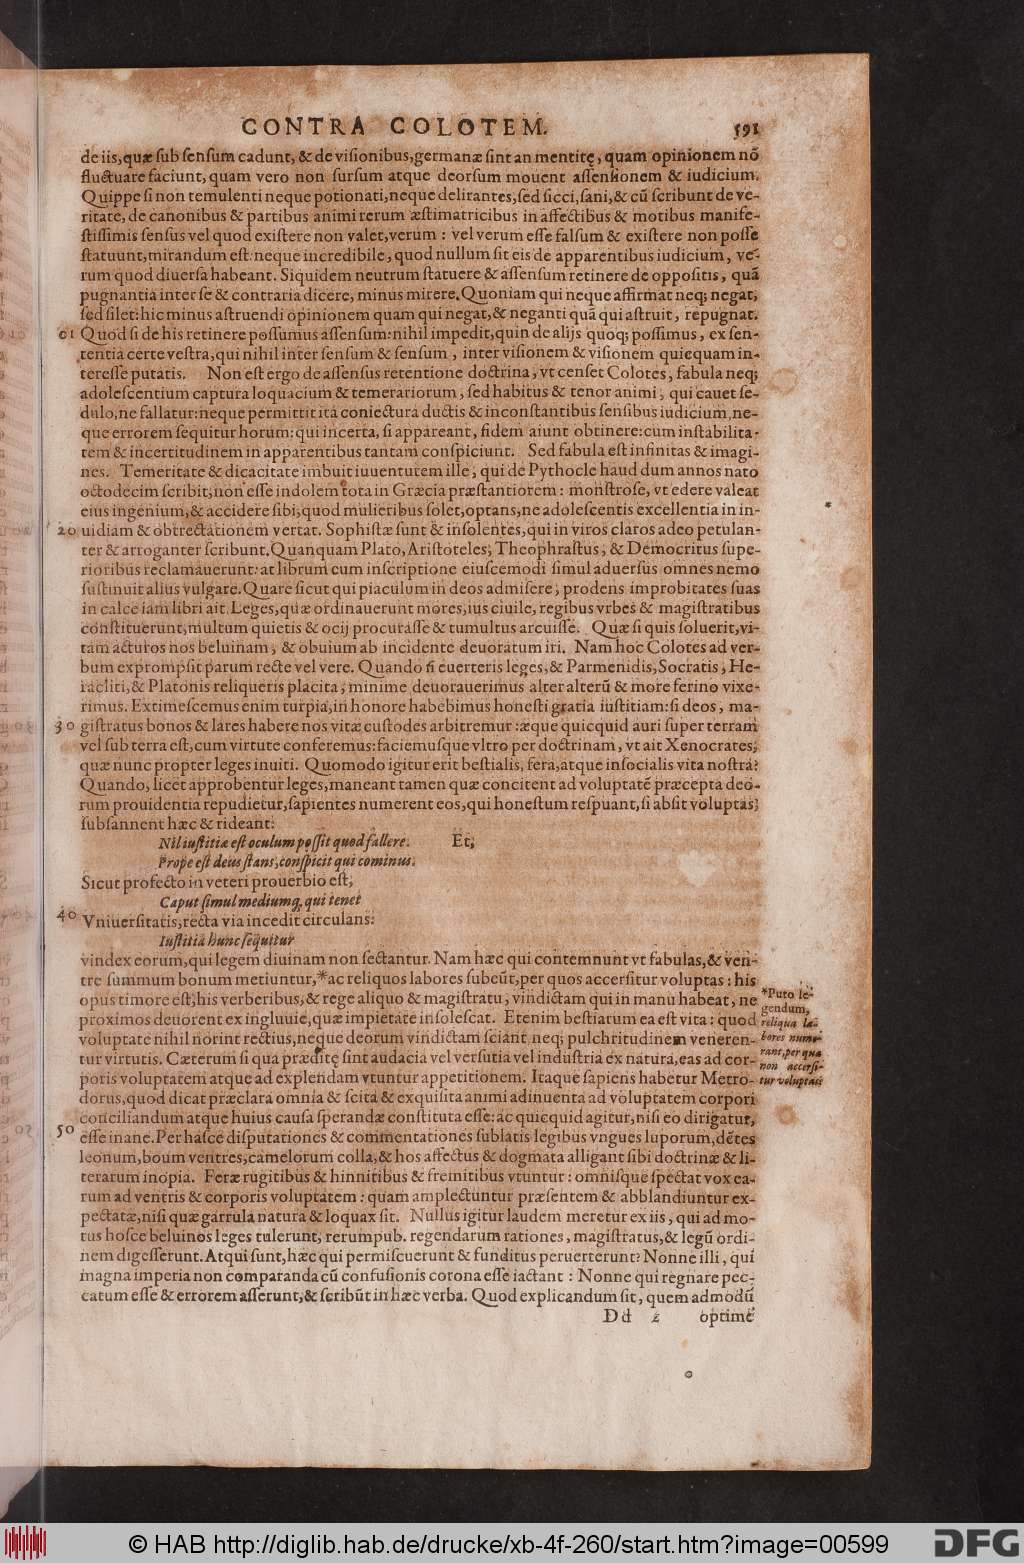 CONTRA COLOTEM. 591
de iis, quæ sub sensum cadunt, & de visionibus, germanæ sint an mentitę, quam opinionem nō
fluctuare faciunt, quam vero non sursum atque deorsum mouent assensionem & iudicium.
Quippe si non temulenti neque potionati, neque delirantes, sed sicci, sani, & cū scribunt de ve-
ritate, de canonibus & partibus animi rerum æstimatricibus in affectibus & motibus manife-
stissimis sensus vel quod existere non valet, verum : vel verum esse falsum & existere non posse
statuunt, mirandum est: neque incredibile, quod nullum sit eis de apparentibus iudicium, ve-
rum quod diuersa habeant. Siquidem neutrum statuere & assensum retinere de oppositis, quā
pugnantia inter se & contraria dicere, minus mirere. Quoniam qui neque affirmat neq; negat,
sed silet: hic minus astruendi opinionem quam qui negat, & neganti quā qui astruit, repugnat.
01 Quod si de his retinere possumus assensum: nihil impedit, quin de alijs quoq; possimus, ex sen-
tentia certe vestra, qui nihil inter sensum & sensum , inter visionem & visionem quicquam in-
teresse putatis. Non est ergo de assensus retentione doctrina, vt censet Colotes, fabula neq;
adolescentium captura loquacium & temerariorum, sed habitus & tenor animi, qui cauet se-
dulo, ne fallatur: neque permittit ita coniectura ductis & inconstantibus sensibus iudicium, ne-
que errorem sequitur horum: qui incerta, si appareant, fidem aiunt obtinere: cum instabilita-
tem & incertitudinem in apparentibus tantam conspiciunt. Sed fabula est infinitas & imagi-
nes. Temeritate & dicacitate imbuit iuuentutem ille, qui de Pythocle haud dum annos nato
octodecim scribit, non esse indolem tota in Græcia præstantiorem : monstrose, vt edere valeat
eius ingenium, & accidere sibi, quod mulieribus solet, optans, ne adolescentis excellentia in in-
20 uidiam & obtrectationem vertat. Sophistæ sunt & insolentes, qui in viros claros adeo petulan-
ter & arroganter scribunt. Quanquam Plato, Aristoteles, Theophrastus, & Democritus supe-
rioribus reclamauerunt: at librum cum inscriptione eiuscemodi simul aduersus omnes nemo
sustinuit alius vulgare. Quare sicut qui piaculum in deos admisere, prodens improbitates suas
in calce iam libri ait. Leges, quæ ordinauerunt mores, ius ciuile, regibus vrbes & magistratibus
constituerunt, multum quietis & ocij procurasse & tumultus arcuisse. Quæ si quis soluerit, vi-
tam acturos nos beluinam, & obuium ab incidente deuoratum iri. Nam hoc Colotes ad ver-
bum exprompsit parum recte vel vere. Quando si euerteris leges, & Parmenidis, Socratis, He-
racliti, & Platonis reliqueris placita, minime deuorauerimus alter alterū & more ferino vixe-
rimus. Extimescemus enim turpia, in honore habebimus honesti gratia iustitiam: si deos, ma-
30 gistratus bonos & lares habere nos vitæ custodes arbitremur : æque quicquid auri super terram
vel sub terra est, cum virtute conferemus: faciemusque vltro per doctrinam, vt ait Xenocrates,
quæ nunc propter leges inuiti. Quomodo igitur erit bestialis, fera, atque insocialis vita nostra?
Quando, licet approbentur leges, maneant tamen quæ concitent ad voluptatē præcepta deo-
rum prouidentia repudietur, sapientes numerent eos, qui honestum respuant, si absit voluptas,
subsannent hæc & rideant:
Nil iustitiæ est oculum possit quod fallere. Et,
Prope est deus stans, conspicit qui cominus.
Sicut profecto in veteri prouerbio est,
Caput simul mediumq; qui tenet
40 Vniuersitatis, recta via incedit circulans:
Iustitia hunc sequitur
vindex eorum, qui legem diuinam non sectantur. Nam hæc qui contemnunt vt fabulas, & ven-
tre summum bonum metiuntur, *ac reliquos labores subeūt, per quos accersitur voluptas : his
opus timore est, his verberibus, & rege aliquo & magistratu, vindictam qui in manu habeat, ne
proximos deuorent ex ingluuie, quæ impietate insolescat. Etenim bestiarum ea est vita : quod
voluptate nihil norint rectius, neque deorum vindictam sciant, neq; pulchritudinem veneren-
tur virtutis. Cæterum si qua præditę sint audacia vel versutia vel industria ex natura, eas ad cor-
poris voluptatem atque ad explendam vtuntur appetitionem. Itaque sapiens habetur Metro-
dorus, quod dicat præclara omnia & scita & exquisita animi adinuenta ad voluptatem corpori
conciliandum atque huius causa sperandæ constituta esse: ac quicquid agitur, nisi eo dirigatur,
50 esse inane. Per hasce disputationes & commentationes sublatis legibus vngues luporum, dētes
leonum, boum ventres, camelorum colla, & hos affectus & dogmata alligant sibi doctrinæ & li-
terarum inopia. Feræ rugitibus & hinnitibus & fremitibus vtuntur : omnisque spectat vox ea-
rum ad ventris & corporis voluptatem : quam amplectuntur præsentem & abblandiuntur ex-
pectatæ, nisi quæ garrula natura & loquax sit. Nullus igitur laudem meretur ex iis, qui ad mo-
tus hosce beluinos leges tulerunt, rerumpub. regendarum rationes, magistratus, & legū ordi-
nem digesserunt. Atqui sunt, hæc qui permiscuerunt & funditus peruerterunt? Nonne illi, qui
magna imperia non comparanda cū confusionis corona esse iactant : Nonne qui regnare pec-
catum esse & errorem asserunt, & scribūt in hæc verba. Quod explicandum sit, quemadmodū
Dd 2 optime
*Puto le-
gendum,
reliqua la-
bores nume-
rant, per quæ
non accersi-
tur voluptas
© HAB http://diglib.hab.de/drucke/xb-4f-260/start.htm?image=00599
DFG